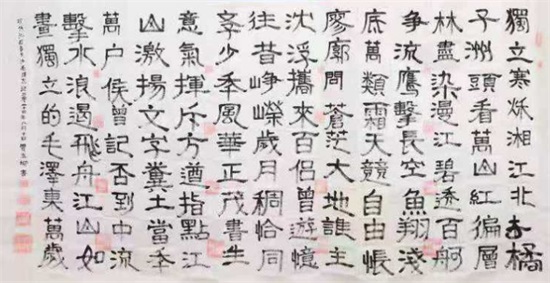 獨立寒秌湘江北去橘
子洲頭看萬山紅徧層
林盡染漫江碧透百舸
争流鷹擊長空魚翔淺
底萬類霜天競自由悵
廖廓問蒼茫大地誰主
沈浮攜來百侶曾遊憶
往昔崢嶸歲月稠恰同
學少秊風華正茂書生
意氣揮斥方遒指點江
山激揚文字糞土當秊
萬户侯曾記否到中流
擊水浪遏飛舟江山如
畫獨立的毛澤東萬歲